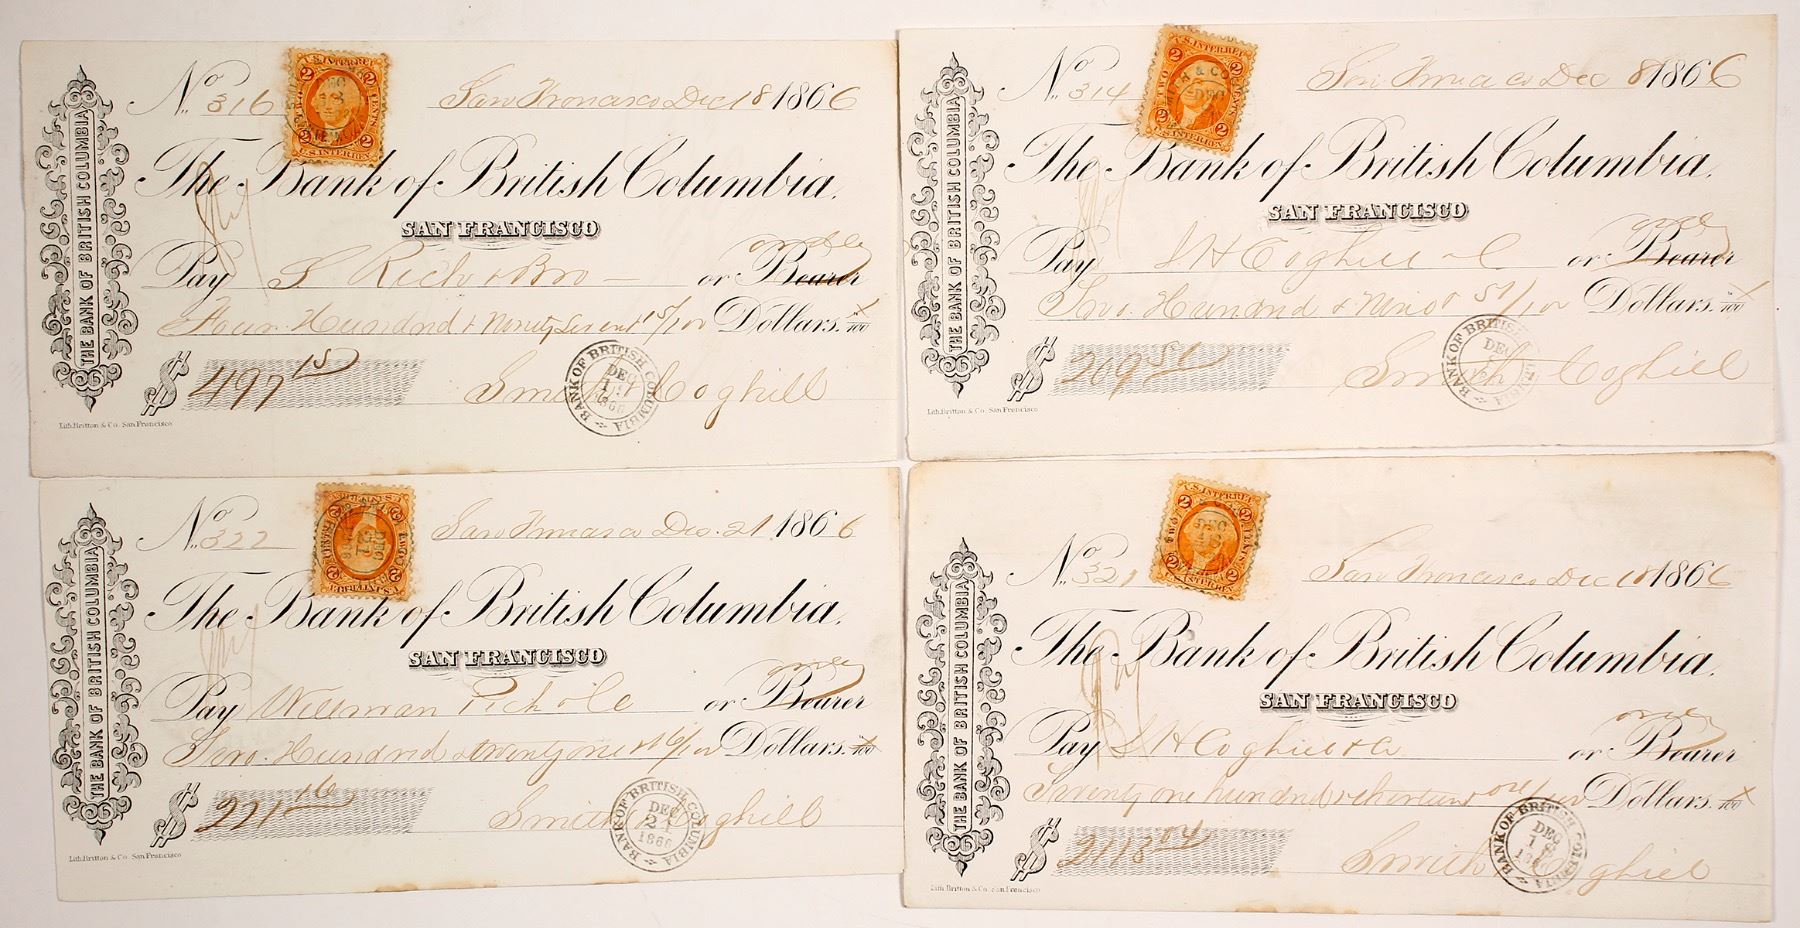 THE BANK OF BRITISH COLUMBIA
No. 316
San Francisco Dec 18 1866
2 2
U.S. INTER. REV.
The Bank of British Columbia.
SAN FRANCISCO
Pay S Rich & Bro or Bearer
order
Four Hundred & Ninety Seven 15/100 Dollars.
$ 497 15
Smith Coghill
BANK OF BRITISH COLUMBIA
DEC
1866
Lith. Britton & Co. San Francisco
THE BANK OF BRITISH COLUMBIA
No. 314
San Francisco Dec 8 1866
2 2
U.S. INTER. REV.
TWO CENTS
DEC
2 2
U.S. INTER. REV.
The Bank of British Columbia.
SAN FRANCISCO
Pay S H Coghill & C or Bearer
Two Hundred & Nine 51/100 Dollars.
$ 209 51
Smith Coghill
BANK OF BRITISH COLUMBIA
DEC
Lith. Britton & Co. San Francisco
THE BANK OF BRITISH COLUMBIA
No. 322
San Francisco Dec. 21 1866
U.S. INTER. REV.
DEC
21
The Bank of British Columbia.
SAN FRANCISCO
Pay Willman Peck & Co or Bearer
Two Hundred & twenty one 16/100 Dollars.
$ 221 16
Smith Coghill
BANK OF BRITISH COLUMBIA
DEC
21
1866
Lith. Britton & Co. San Francisco
THE BANK OF BRITISH COLUMBIA
No. 321
San Francisco Dec 18 1866
2 2
U.S. INTER. REV.
TWO CENTS
DEC
18
2 2
U.S. INTER. REV.
The Bank of British Columbia.
SAN FRANCISCO
Pay S H Coghill & Co or Bearer
Twenty one hundred & thirteen 04/100 Dollars.
$ 2113 04
Smith Coghill
BANK OF BRITISH COLUMBIA
DEC
1866
Lith. Britton & Co. San Francisco